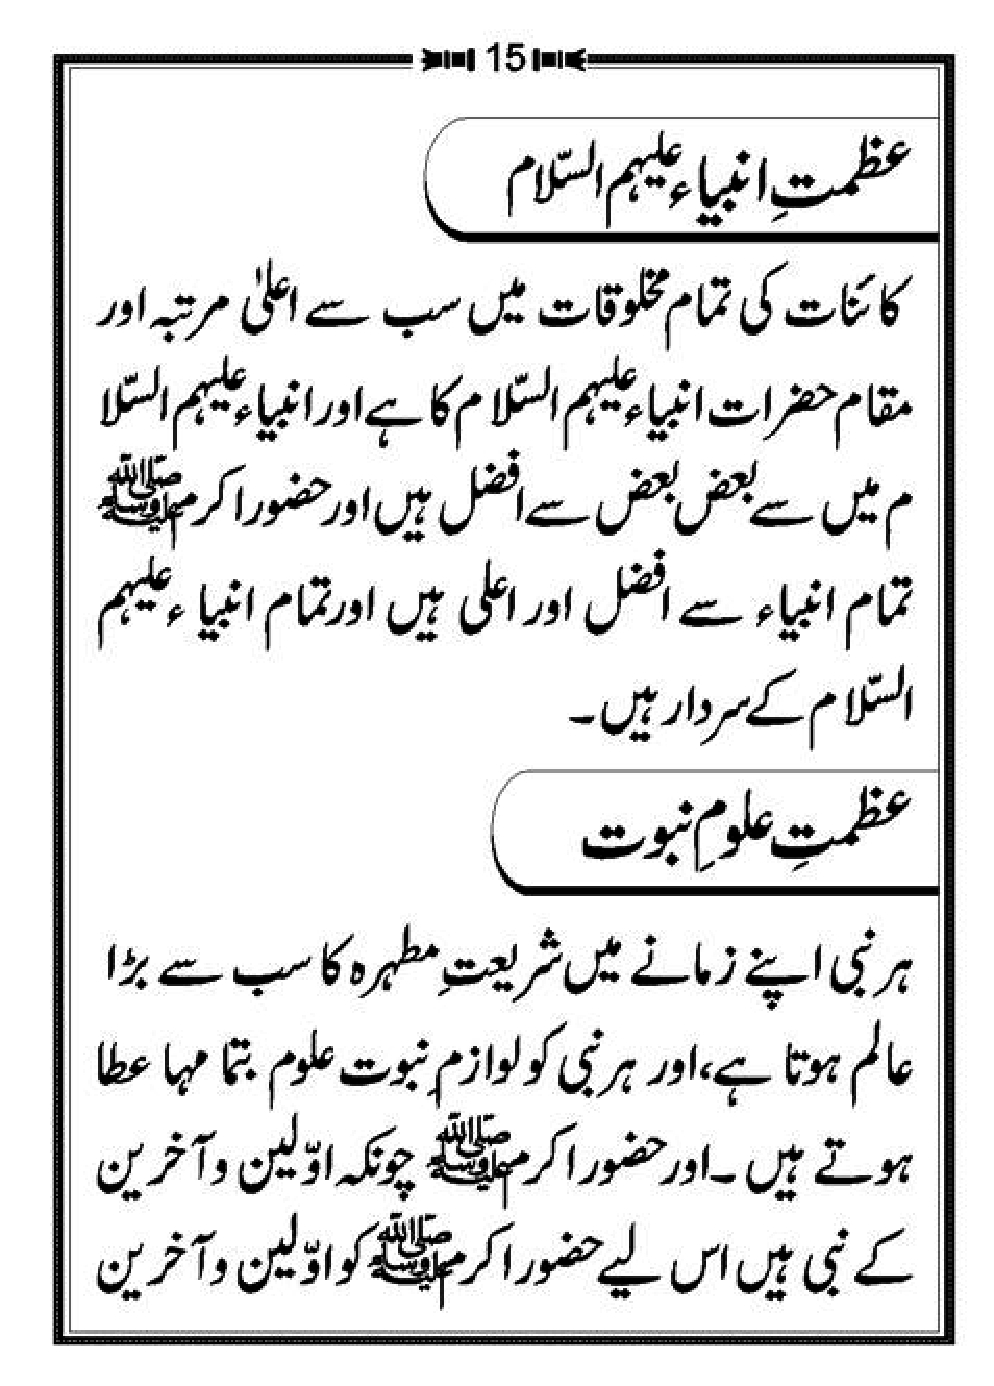 15
عظمتِ انبیاء علیہم السّلام
کائنات کی تمام مخلوقات میں سب سے اعلیٰ مرتبہ اور
مقام حضرات انبیاء علیہم السّلا م کا ہے اور انبیاء علیہم السّلا
م میں سے بعض بعض سے افضل ہیں اور حضور اکرم ﷺ
تمام انبیاء سے افضل اور اعلی ہیں اور تمام انبیا ء علیہم
السّلا م کے سردار ہیں۔
عظمتِ علومِ نبوت
ہر نبی اپنے زمانے میں شریعتِ مطہرہ کا سب سے بڑا
عالم ہوتا ہے، اور ہر نبی کو لوازمِ نبوت علوم بتما مہا عطا
ہوتے ہیں ۔اور حضور اکرم ﷺ چونکہ اوّلین و آخرین
کے نبی ہیں اس لیے حضور اکرم ﷺ کو اوّلین و آخرین